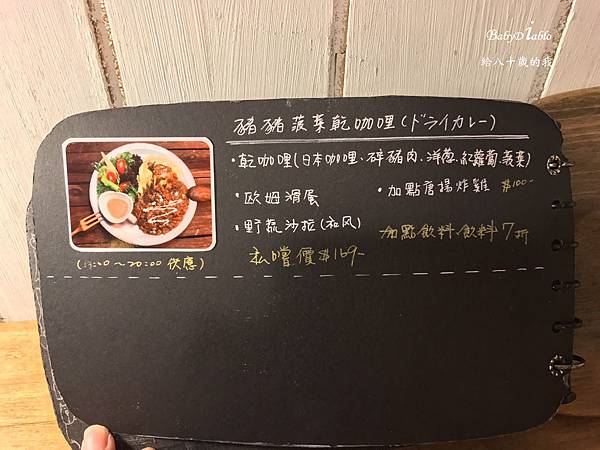 BabyDiablo
給八十歲的我
豬豬菠菜乾咖哩(ドライカレー)
•乾咖哩(日本咖哩、碎豬肉、洋蔥、紅蘿蔔、菠菜)
•歐姆滑蛋
•加點唐揚炸雞 $100-
•野蔬沙拉(和风)
加點飲料、飲料7折
私嚐價$169-
(13:00~20:00供應)